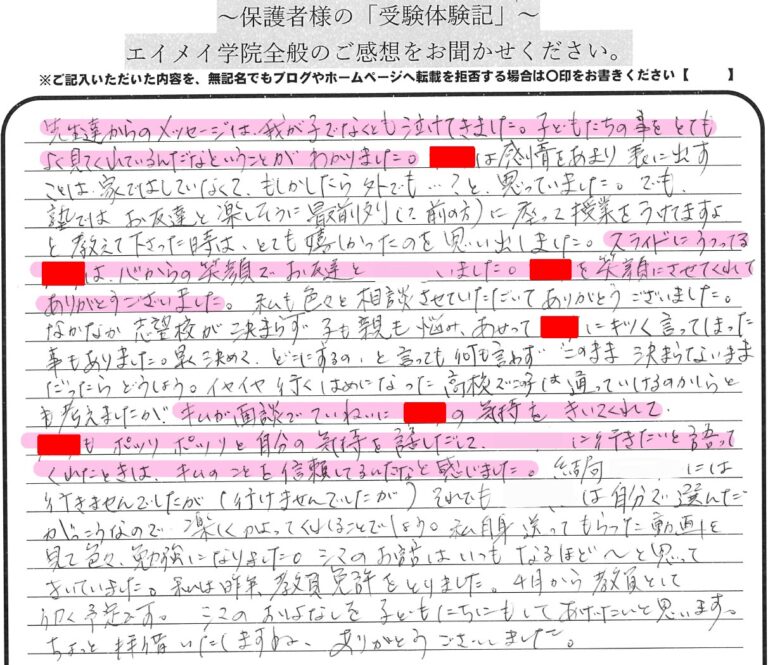 ～保護者様の「受験体験記」～
エイメイ学院全般のご感想をお聞かせください。
※ご記入いただいた内容を、無記名でもブログやホームページへ転載を拒否する場合は〇印をお書きください【　　】
先生達からのメッセージは、我が子でなくとも泣けてきました。子どもたちの事をとても
よく見てくれているんだなということが わかりました。 は感情をあまり 表に出す
ことは、家ではしていなくて、もしかしたら 外でも…？と、思っていました。でも、
塾では お友達と 楽しそうに最前列(て 前の方)に 座って 授業を うけてますよ
と 教えて下さった時は、とても嬉しかったのを 思い出しました。スライドにうつってる
は、心からの笑顔で お友達と いました。 を 笑顔にさせてくれて
ありがとうございました。私も 色々と 相談させていただいて ありがとう ございました。
なかなか 志望校が 決まらず 子も 親も 悩み、あせって に キツく 言ってしまった
事もありました。早く決めて、どこにするの、と 言っても 何も言わず このまま 決まらないまま
だったら どうしよう。イヤイヤ 行く はめになった 高校で この子は 通っていけるのかしらと
も 考えましたが、キムが 面談で ていねいに の 気持を きいてくれて、
も ポツリ ポツリと 自分の 気持を 話しだして、 に行きたいと 語って
くれたときは、キムのことを 信頼してるんだなと 感じました。 結局 には
行きませんでしたが (行けませんでしたが) それでも は 自分で 選んだ
がっこうなので 楽しく かよってくれることでしょう。私自身 送って もらった 動画を
見て 色々、勉強に なりました。シマの お話は いつも なるほど～と 思って
きいていました。私は 昨年 教員免許を とりました。4月から 教員として
働く 予定です。シマの おはなしを 子どもたちにも してあげたいと 思います。
ちょっと 拝借 いたしますね。ありがとう ございました。